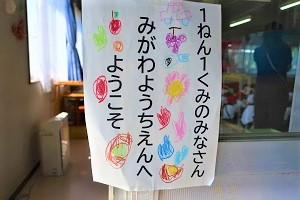 1ねん1くみのみなさん
みがわようちえんへ
ようこそ